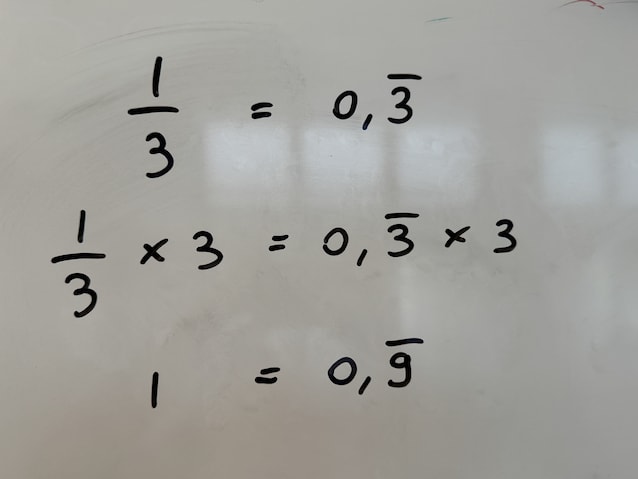 1/3 = 0,3̅
1/3 × 3 = 0,3̅ × 3
1 = 0,9̅